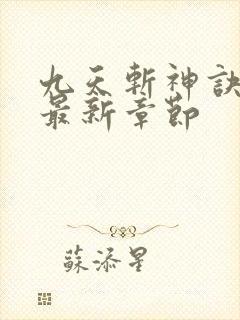 九天斬神訣
最新章節
蘇添星